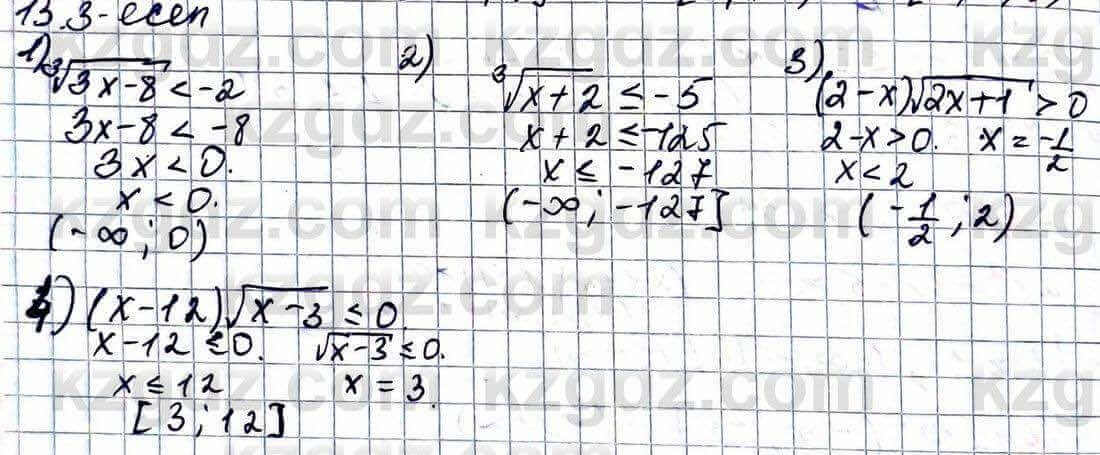 13.3-есеп
1) ∛(3x-8) < -2
3x-8 < -8
3x < 0.
x < 0.
(-∞; 0)
2) ∛(x+2) ≤ -5
x+2 ≤ -125
x ≤ -127
(-∞; -127]
3) (2-x)√(2x+1) > 0
2-x > 0. x = -1/2
x < 2
(-1/2; 2)
4) (x-12)√(x-3) ≤ 0.
x-12 ≤ 0. √(x-3) ≤ 0.
x ≤ 12 x = 3.
[3; 12]
kzgdz.com